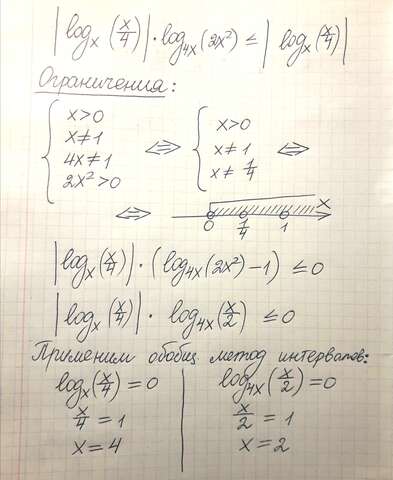 |log_x (x/4)| · log_4x (2x²) ≤ |log_x (x/4)|
Ограничения:
{ x>0
x≠1
4x≠1
2x²>0
⟺ { x>0
x≠1
x≠ 1/4
⟺
⟺ 0 1/4 1 x
|log_x (x/4)| · (log_4x (2x²) −1) ≤0
|log_x (x/4)| · log_4x (x/2) ≤0
Применим обобщ метод интервалов:
log_x (x/4) =0
x/4 = 1
x=4
log_4x (x/2) =0
x/2 = 1
x=2